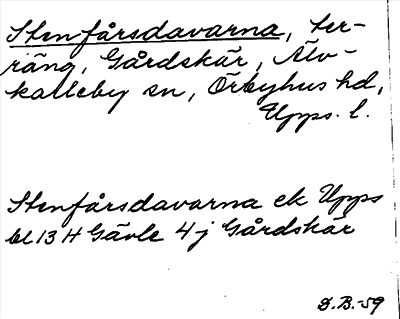 Stenfårsdavarna, ter-
räng, Gårdskär, Älv-
karleby sn, Örbyhus hd,
Upps. l.
Stenfårsdavarna ek Upps
bl 13 H Gävle 4 j Gårdskär
D.B.-59